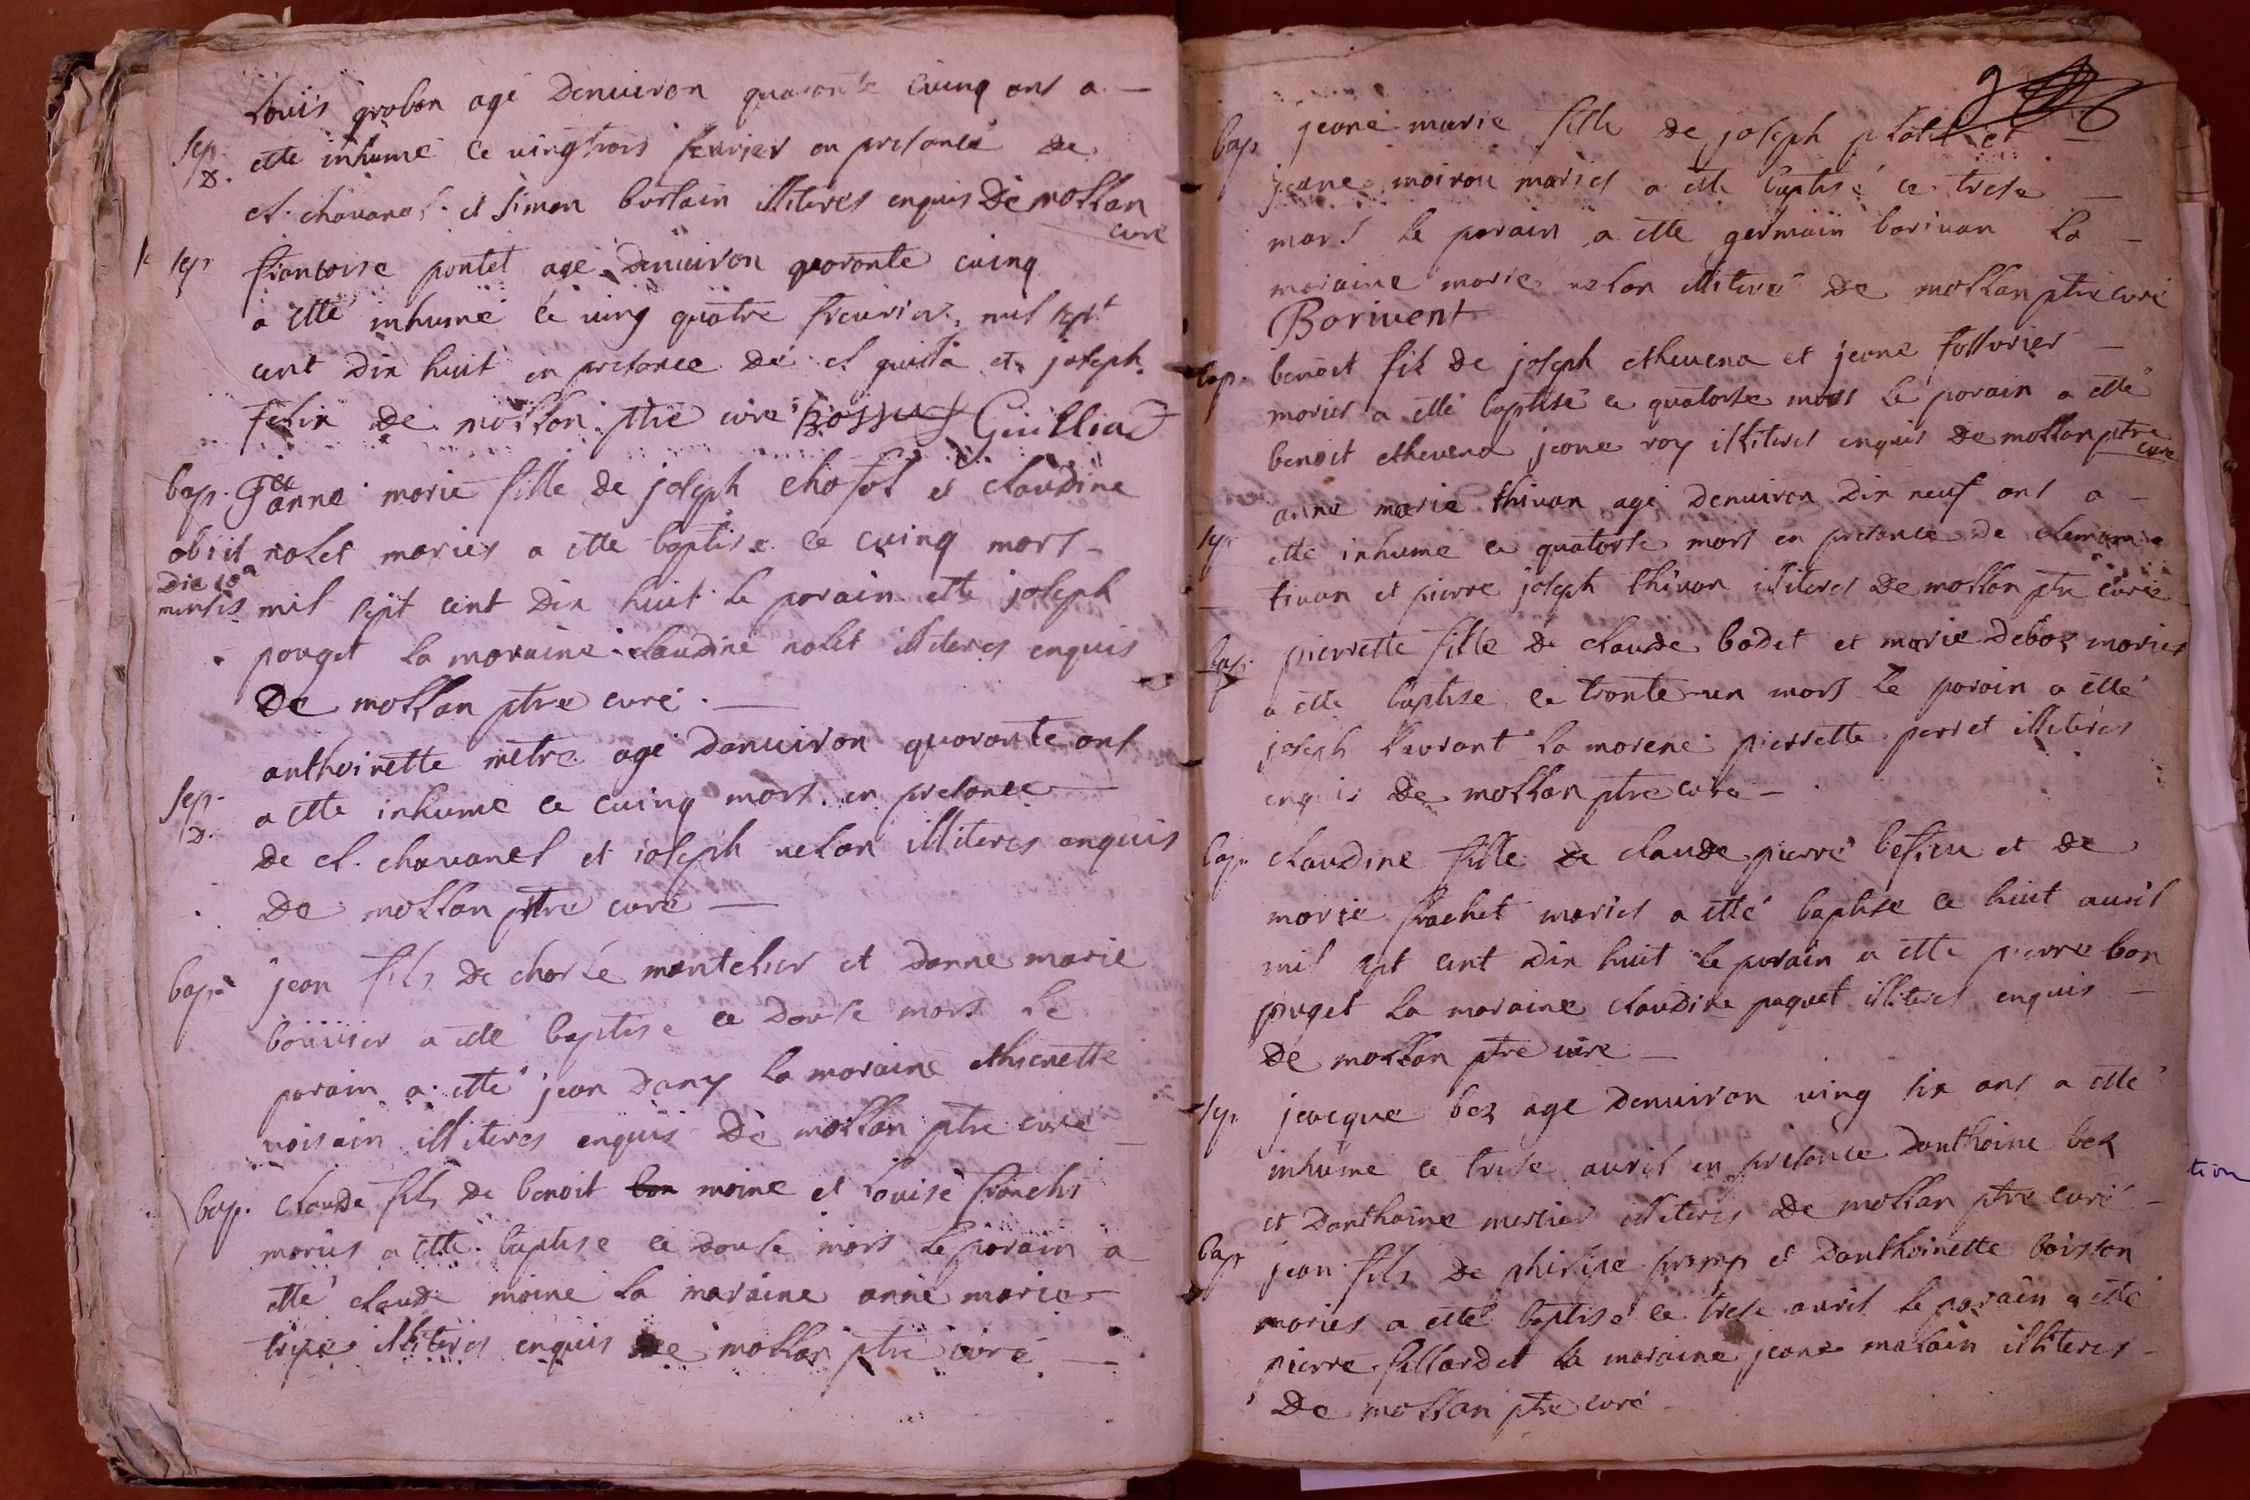 Louis grobon agé denuiron quarante cuinq ans a
sep. D. etté inhumé ce uingtrois feurier en presance de
cl. chauanel et simon burlain illiteres enquis De mollan
curé
sep francoise pontet agé denuiron quoronte cuinq
a etté inhumé ce uing quatre feurier mil sept
cent dix huit en presance de cl guilla et joseph
felix de mollan ptre curé Bossus Guilliad
bap. Jeanne marie fille de joseph chosol et claudine
obiit nolet maries a etté baptisé ce cuinq mars
Die 10a
mensis mil sept cent dix huit le porain etté joseph
pouget la moraine claudine nolet illiteres enquis
De mollan ptre curé
anthoinette metre agé danuiron quoronte ans
sep. D. a etté inhumé ce cuinq mars en presance
de cl. chauanel et joseph uelon illiteres enquis
De mollan ptre curé
bap. jean fils de charle montelier et danne marie
bouuier a etté baptisé ce douse mars le
porain a etté jean dany la moraine ethienette
uoisain illiteres enquis De mollan ptre curé
bap. claude fils de benoit bon moine et Louise franchi
mories a etté baptisé ce douse mars le porain a
etté claude moine la moraine anne marie
illiteres enquis De mollan ptre curé
9
bap jeane marie fille de joseph et
jeane moirou mariés a etté baptisé ce trese
mars le porain a etté germain boriuan la
moraine marie uelon illiteré De mollan ptre curé
Boriuent
bap. benoit fils de joseph etheuena et jeane follurier
mories a etté baptisé ce quatorse mars le porain a etté
benoit etheuena jeane roy illiteres enquis De mollan ptre
curé
anne marie thiuan agé denuiron dix neuf ans a
sep etté inhumé ce quatorse mars en presance de
tiuan et pierre joseph thiuan illiteres De mollan ptre curé
bap. pierrette fille de claude bodet et marie deboz maries
a etté baptisé ce tronte un mars le porain a etté
joseph laurant la morene pierrette perret illiteres
enquis De mollan ptre curé
bap. claudine fille de claude pierre bessieu et de
marie frachet mariés a etté baptisé ce huit auril
mil sept cent dix huit le porain a etté pierre bon
puget la moraine claudine paquet illiteres enquis
De mollan ptre curé
sep. jeacque bez agé denuiron uing six ans a etté
inhumé ce trese auril en presance danthoine bez
et danthoine mercier illiteres De mollan ptre curé
bap jean fils de et danthoinette boisson
mories a etté baptisé ce trese auril le porain a etté
pierre fillardet la moraine jeane malain illiteres
De mollan ptre curé
tion